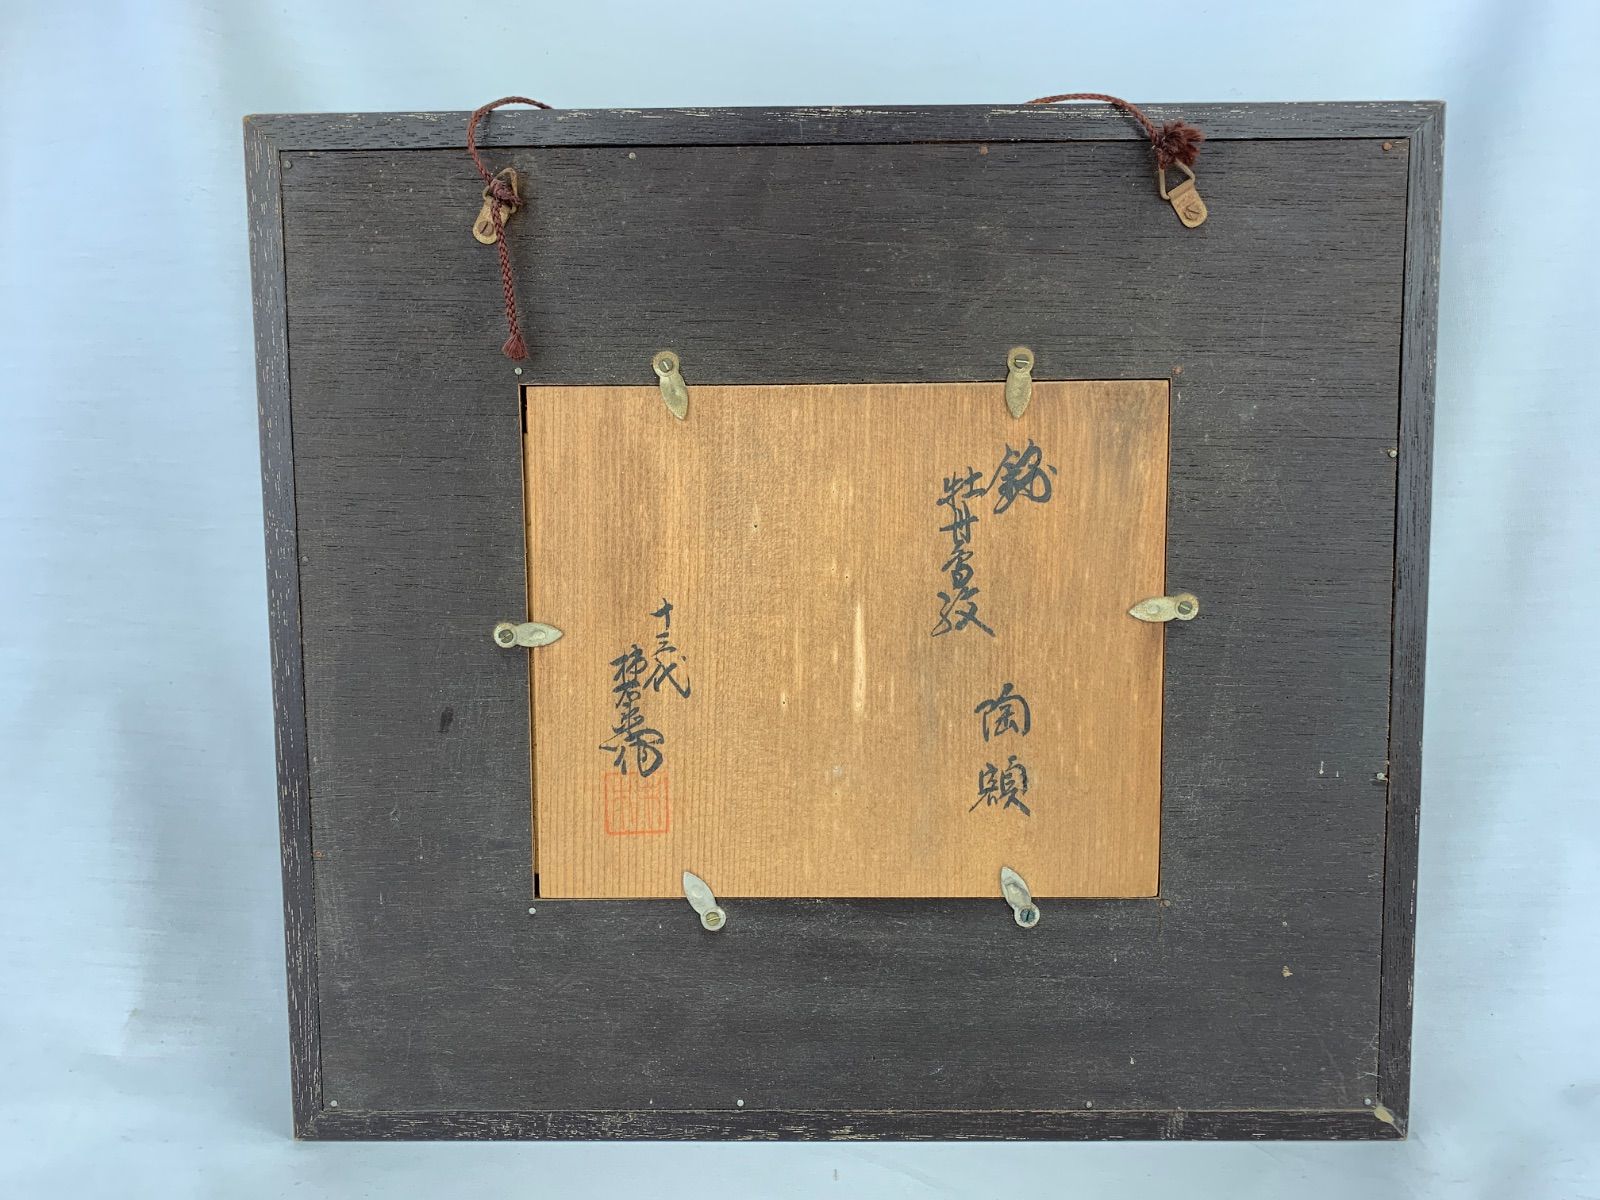 錦
牡丹鳥紋
陶額
十三代
柿右衛門